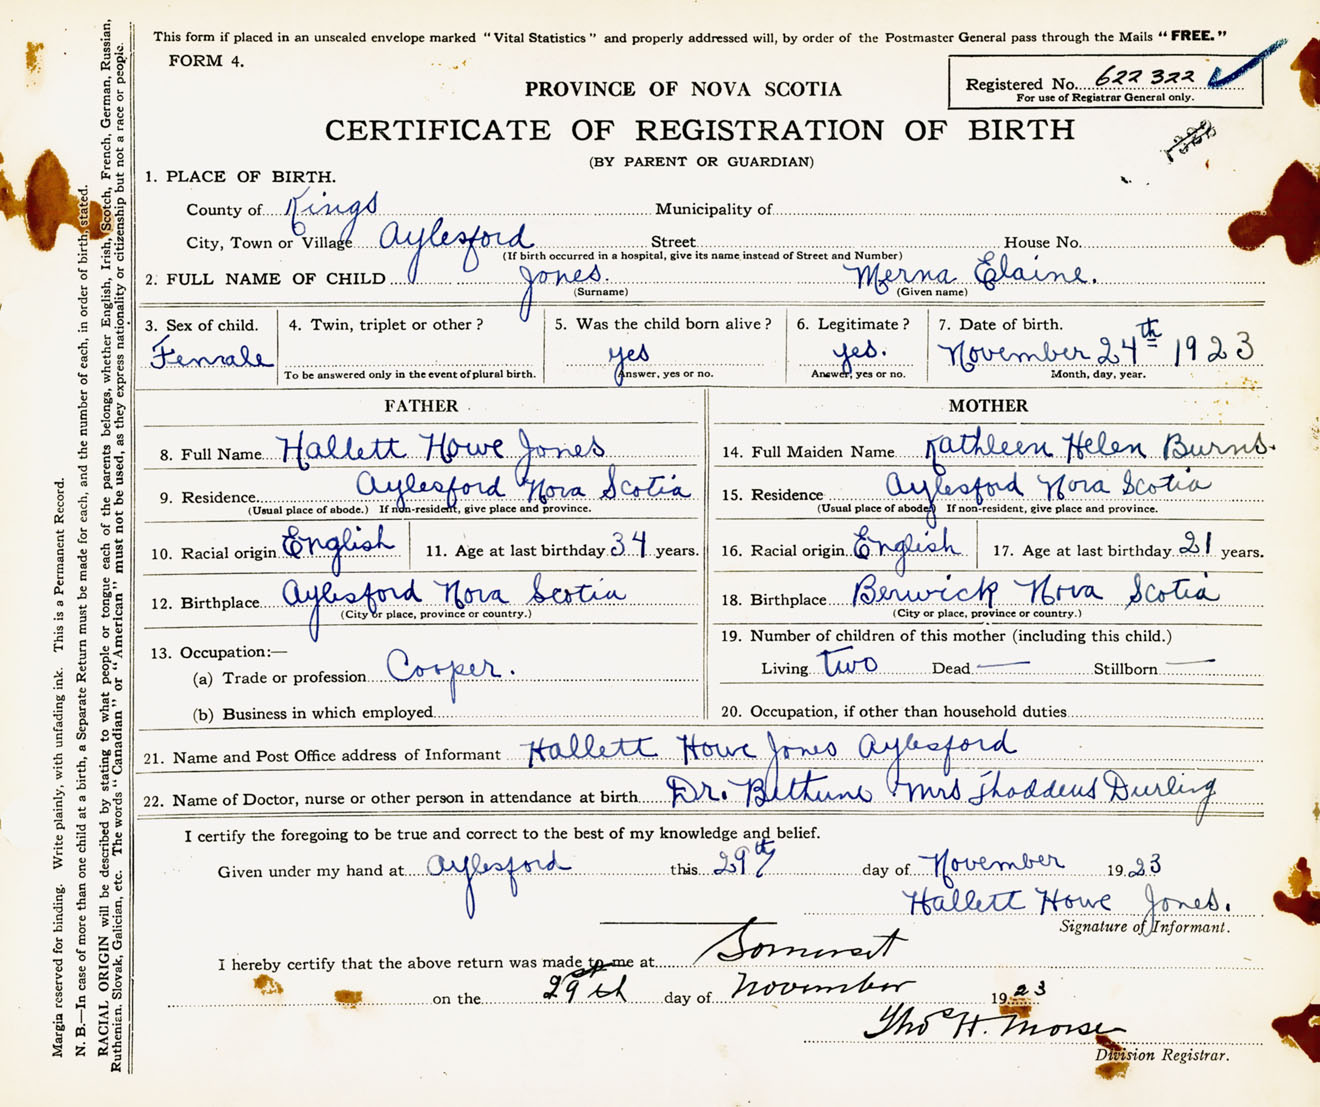 This form if placed in an unsealed envelope marked "Vital Statistics" and properly addressed will, by order of the Postmaster General pass through the Mails "FREE."
FORM 4.
Registered No. 622322
For use of Registrar General only.
PROVINCE OF NOVA SCOTIA
CERTIFICATE OF REGISTRATION OF BIRTH
(BY PARENT OR GUARDIAN)
1. PLACE OF BIRTH.
County of Kings Municipality of
City, Town or Village Aylesford Street House No.
(If birth occurred in a hospital, give its name instead of Street and Number)
2. FULL NAME OF CHILD Jones. Merna Elaine.
(Surname) (Given name)
3. Sex of child. 4. Twin, triplet or other? 5. Was the child born alive? 6. Legitimate? 7. Date of birth.
Female yes yes. November 24th 1923
To be answered only in the event of plural birth. (Answer, yes or no. Answer, yes or no. Month, day, year.
FATHER MOTHER
8. Full Name Hallett Howe Jones
9. Residence Aylesford Nova Scotia
(Usual place of abode.) If non-resident, give place and province.
10. Racial origin English 11. Age at last birthday 34 years.
12. Birthplace Aylesford Nova Scotia
(City or place, province or country.)
13. Occupation:—
(a) Trade or profession Cooper.
(b) Business in which employed
14. Full Maiden Name Kathleen Helen Burns.
15. Residence Aylesford Nova Scotia
(Usual place of abode) If non-resident, give place and province.
16. Racial origin English 17. Age at last birthday 21 years.
18. Birthplace Berwick Nova Scotia
(City or place, province or country.)
19. Number of children of this mother (including this child.)
Living two Dead — Stillborn —
20. Occupation, if other than household duties
21. Name and Post Office address of Informant Hallett Howe Jones Aylesford
22. Name of Doctor, nurse or other person in attendance at birth Dr. Bethune Mrs Thoddeus Durling
I certify the foregoing to be true and correct to the best of my knowledge and belief.
Given under my hand at Aylesford this 29th day of November 1923
Hallett Howe Jones.
Signature of Informant.
I hereby certify that the above return was made to me at Somerset
on the 29th day of November 1923
Thos H. Morse
Division Registrar.
Margin reserved for binding. Write plainly, with unfading ink. This is a Permanent Record.
N. B.—In case of more than one child at a birth, a Separate Return must be made for each, and the number of each, in order of birth, stated.
RACIAL ORIGIN will be described by stating to what people or tongue each of the parents belongs, whether English, Irish, Scotch, French, German, Russian,
Ruthenian, Slovak, Galician, etc. The words "Canadian" or "American" must not be used, as they express nationality or citizenship but not a race or people.